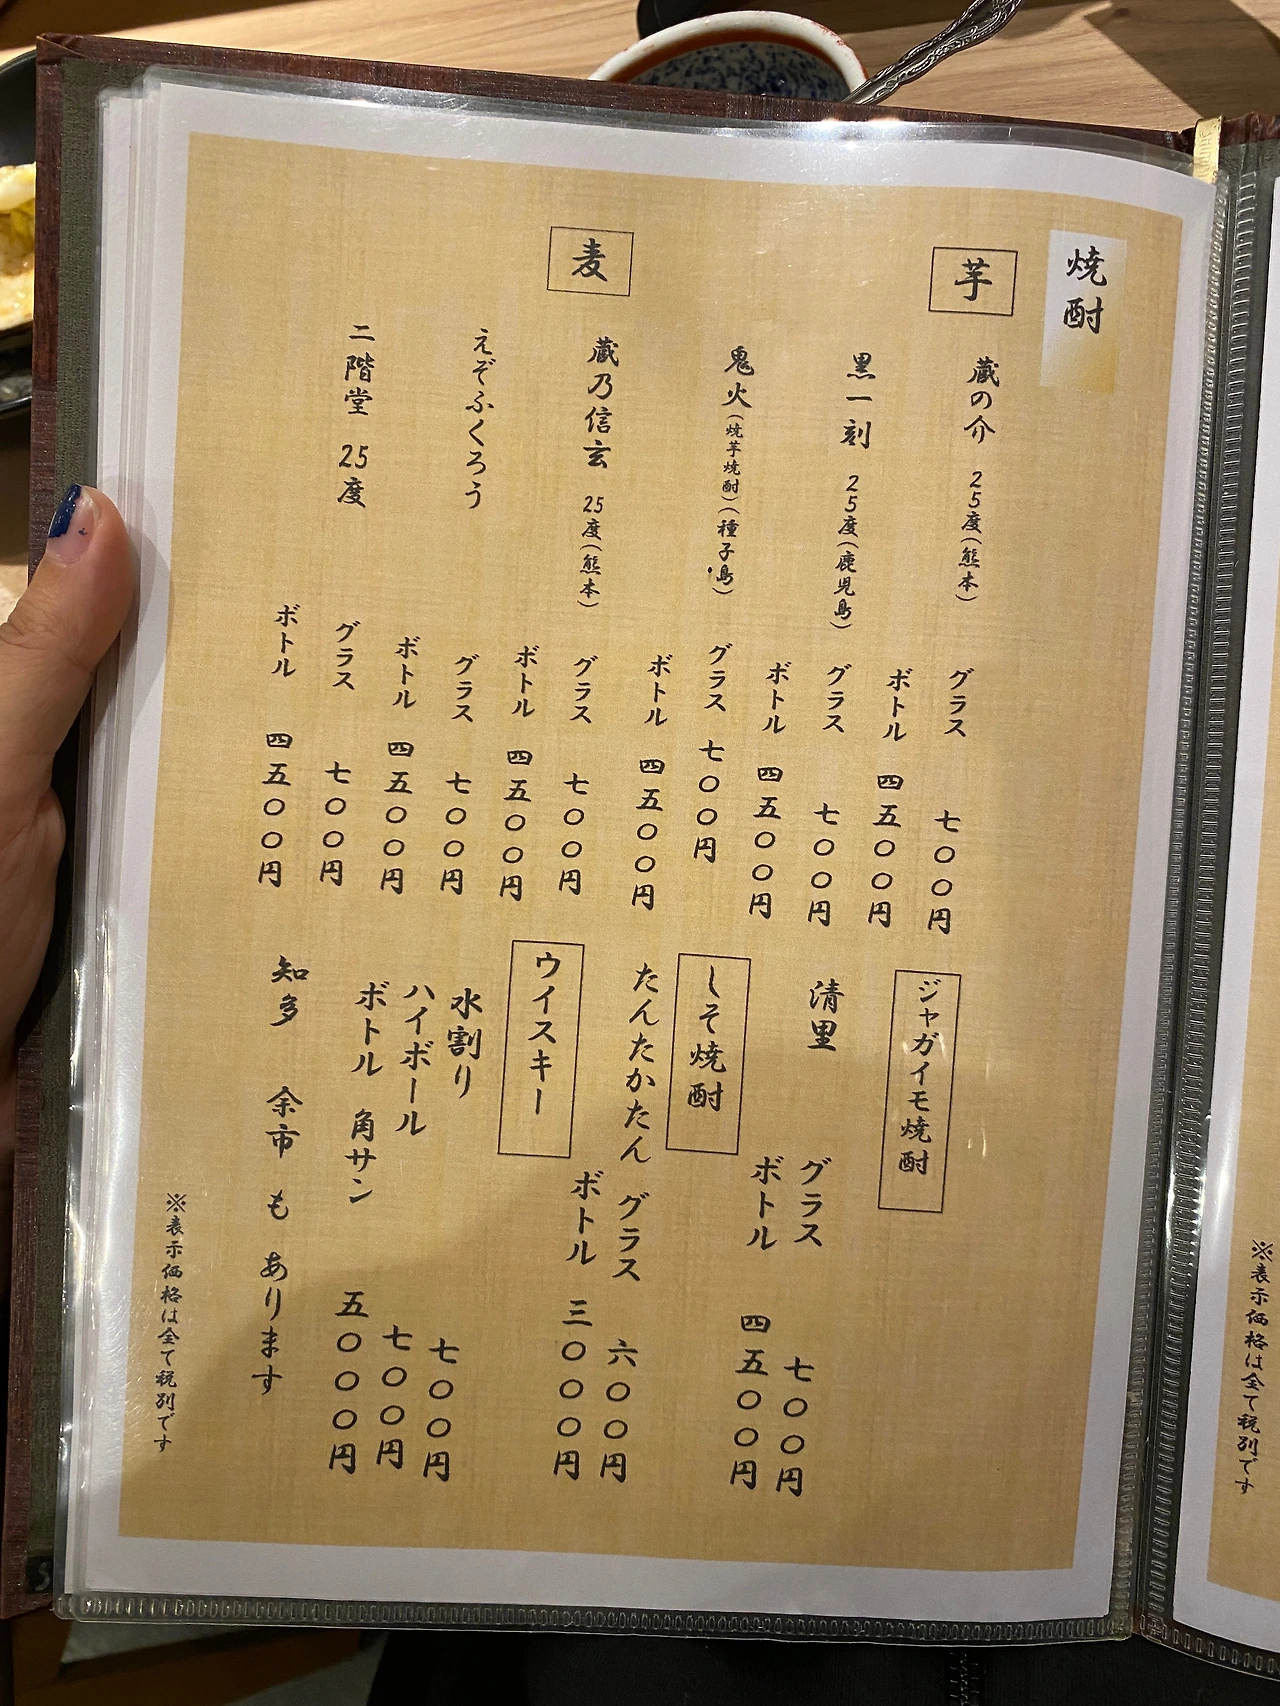 焼酎
芋
蔵の介 25度(熊本)
グラス 七〇〇円
ボトル 四五〇〇円
黒一刻 25度(鹿児島)
グラス 七〇〇円
ボトル 四五〇〇円
鬼火(焼芋焼酎)(種子島)
グラス 七〇〇円
ボトル 四五〇〇円
麦
蔵乃信玄 25度(熊本)
グラス 七〇〇円
ボトル 四五〇〇円
えぞふくろう
グラス 七〇〇円
ボトル 四五〇〇円
二階堂 25度
グラス 七〇〇円
ボトル 四五〇〇円
ジャガイモ焼酎
清里
グラス 七〇〇円
ボトル 四五〇〇円
しそ焼酎
たんたかたん グラス 六〇〇円
ボトル 三〇〇〇円
ウイスキー
水割り 七〇〇円
ハイボール 七〇〇円
ボトル 角サン 五〇〇〇円
知多 余市 も あります
※表示価格は全て税別です
※表示価格は全て税別です